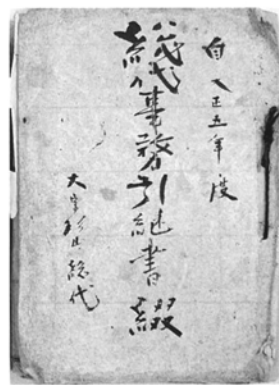 自大正五年度
総代事務引継書綴
大字 総代